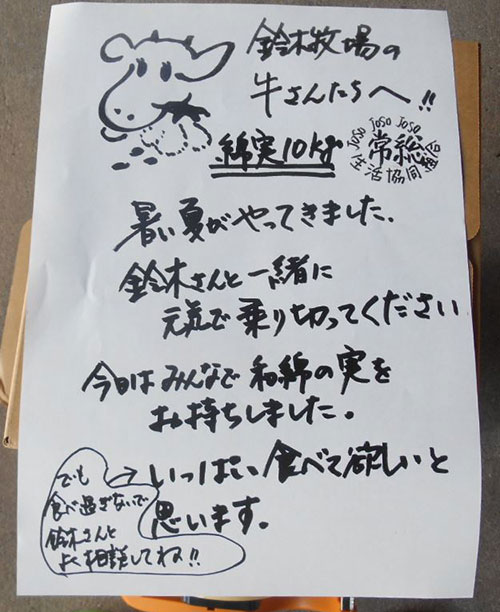 鈴木牧場の
牛さんたちへ!!
綿実10kg
JOSO JOSO JOSO JOSO
常総
生活協同組合
暑い夏がやってきました、
鈴木さんと一緒に
元気で乗り切ってください
今日はみんなで和綿の実を
お持ちしました。
→いっぱい食べて欲しいと
思います。
でも
食べ過ぎないで
鈴木さんと
よく相談してね!!